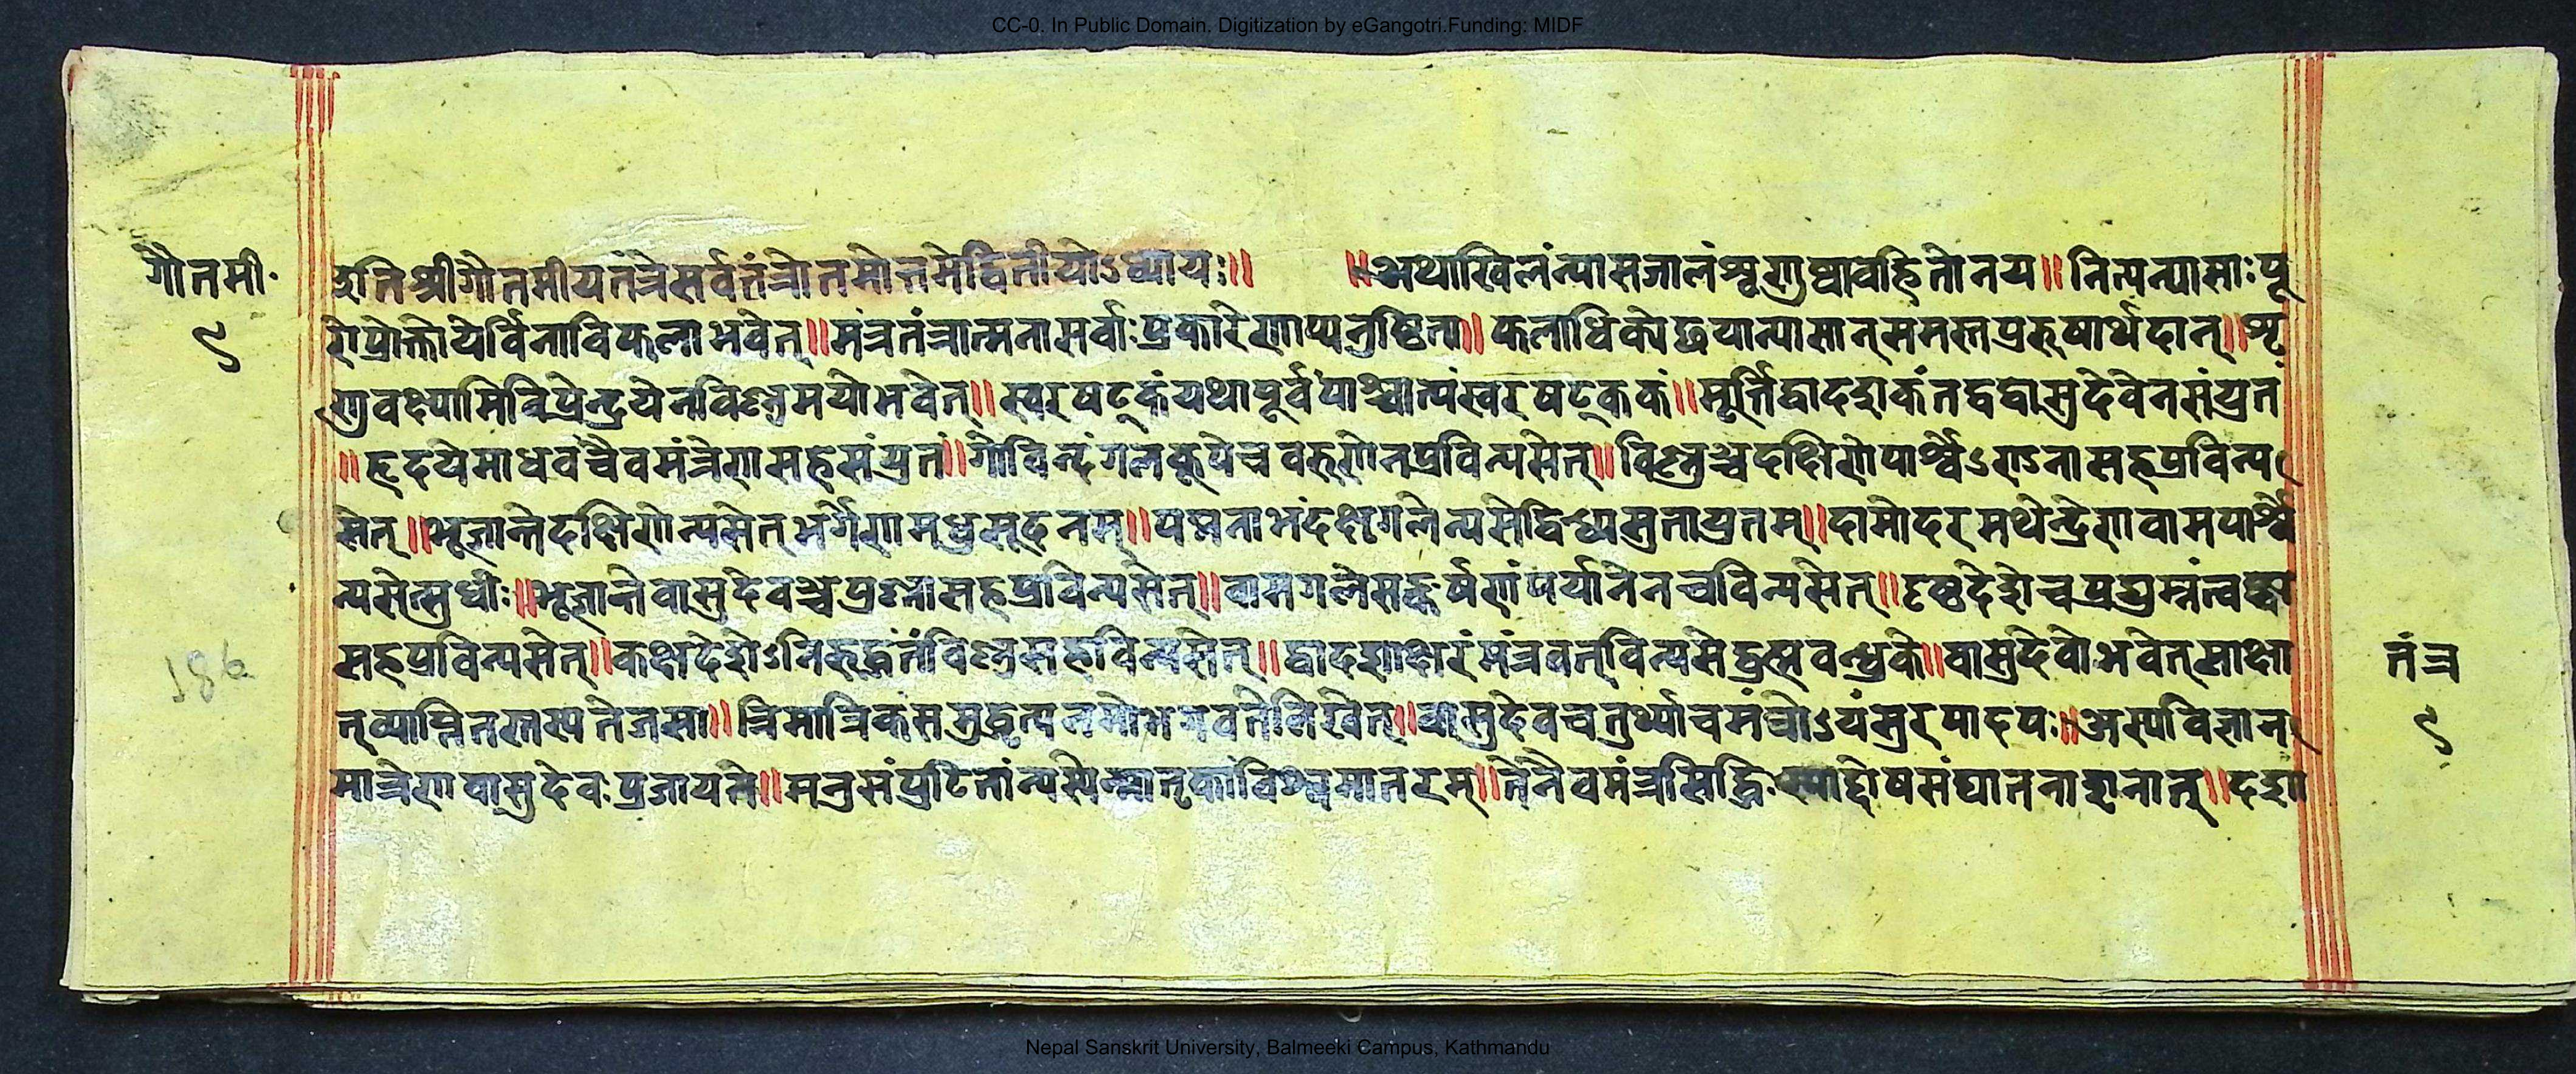 CC-0. In Public Domain. Digitization by eGangotri.Funding: MIDF
गौतमी॰
९
इति श्रीगौतमीयतंत्रे सर्वतंत्रोतमोत्तमे द्वितीयोऽध्यायः॥ ॥अथाखिलं न्यासजालं शृणुष्वावहितो नय॥ नित्यन्यासाः पू
रोप्रोक्तो येर्विना विफला भवेत्॥ मंत्रतंत्रात्मना सर्वाः प्रकारेणाप्यनुष्ठित्या॥ फलाधिको न्यासान् समस्तपुरुषार्थदान्॥ शृ
णु वक्ष्यामि विप्रेन्द्र येन विष्णुमयो भवेत्॥ स्वरषट्कं यथापूर्वं पाश्चात्यं स्वरषट्ककं॥ मूर्त्तिद्वादशकं तद्वद्वासुदेवेन संयुतं
॥हृदये माधवं चैव मंत्रेण सह संयुतं॥ गोविन्दं गलकूपे च वरुणेन प्रविन्यसेत्॥ विष्णुञ्च दक्षिणे पार्श्वेऽ सह प्रविन्य
सेत्॥ भूजान्ते दक्षिणे न्यसेत् भर्गेण मधुसूदनम्॥ पद्मनाभं दक्षगले न्यसेद्वि युतम्॥ दामोदरमथेन्द्रेण वामपार्श्वे
न्यसेत्सुधीः॥ भूजान्ते वासुदेवञ्च पूष्णा सह प्रविन्यसेत्॥ वामगले सङ्कर्षणं पर्यानेन च विन्यसेत्॥ पृष्ठदेशे च प्रद्युम्नं त्वष्ट्रा
सह प्रविन्यसेत्॥ कक्षदेशेऽनिरुद्धं तं विष्णु सह विन्यसेत्॥ द्वादशाक्षरं मंत्रवत् विन्यसेद्ब्रह्म के॥ वासुदेवो भवेत् साक्षा
त् व्याप्नि तस्तस्य तेजसा॥ त्रिमात्रिकं समुद्धृत्य नमो भगवते लिखेत्॥ वासुदेव चतुर्थ्या च मंत्रोऽयं सुरपादपः॥ अस्य विज्ञान
मात्रेण वासुदेवः प्रजायते॥ मनुसंपुटितां न्यस्येन्मातृकां विश्वमातरम्॥ तेनैव मंत्रसिद्धिः स्याद्दोषसंघातनाशनात्॥ दशा
186
तंत्र
९
Nepal Sanskrit University, Balmeeki Campus, Kathmandu